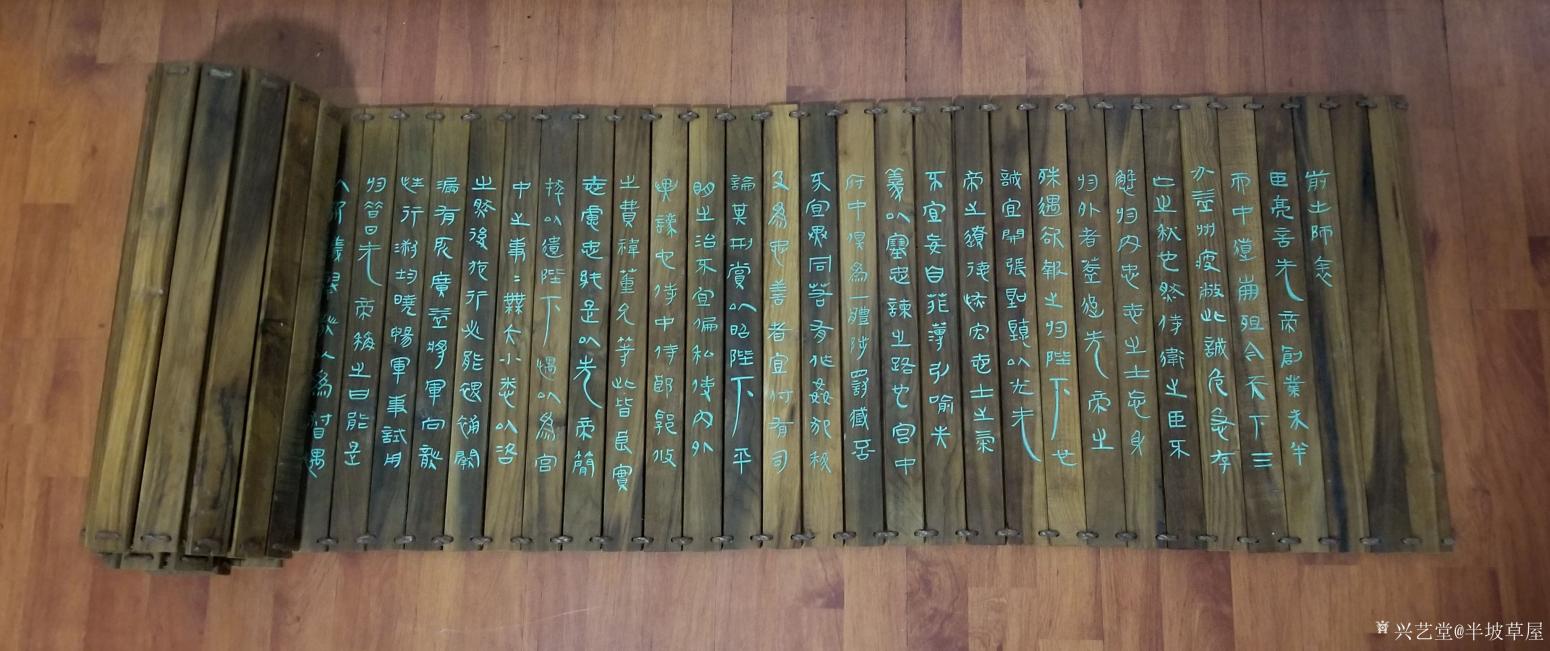 前出師表
臣亮言先帝創業未半
而中道崩殂今天下三
分益州疲敝此誠危急存
亡之秋也然侍衛之臣不
懈於內忠志之士忘身
於外者蓋追先帝之
殊遇欲報之於陛下也
誠宜開張聖聽以光先
帝之遺德恢宏志士之氣
不宜妄自菲薄引喻失
義以塞忠諫之路也宮中
府中俱為一體陟罰臧否
不宜異同若有作姦犯科
及為忠善者宜付有司
論其刑賞以昭陛下平
明之治不宜偏私使內外
異灋也侍中侍郎郭攸
之費禕董允等此皆良實
志慮忠純是以先帝簡
拔以遺陛下愚以為宮
中之事〻無大小悉以咨
之然後施行必能裨補闕
漏有所廣益將軍向寵
性行淑均曉暢軍事試用
於昔日先帝稱之曰能是
為督愚
兴艺堂@半坡草屋